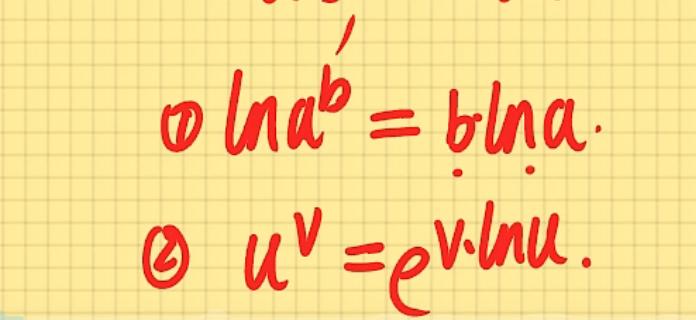 ① ln a^b = b·ln a.
② u^v = e^{v·ln u}.